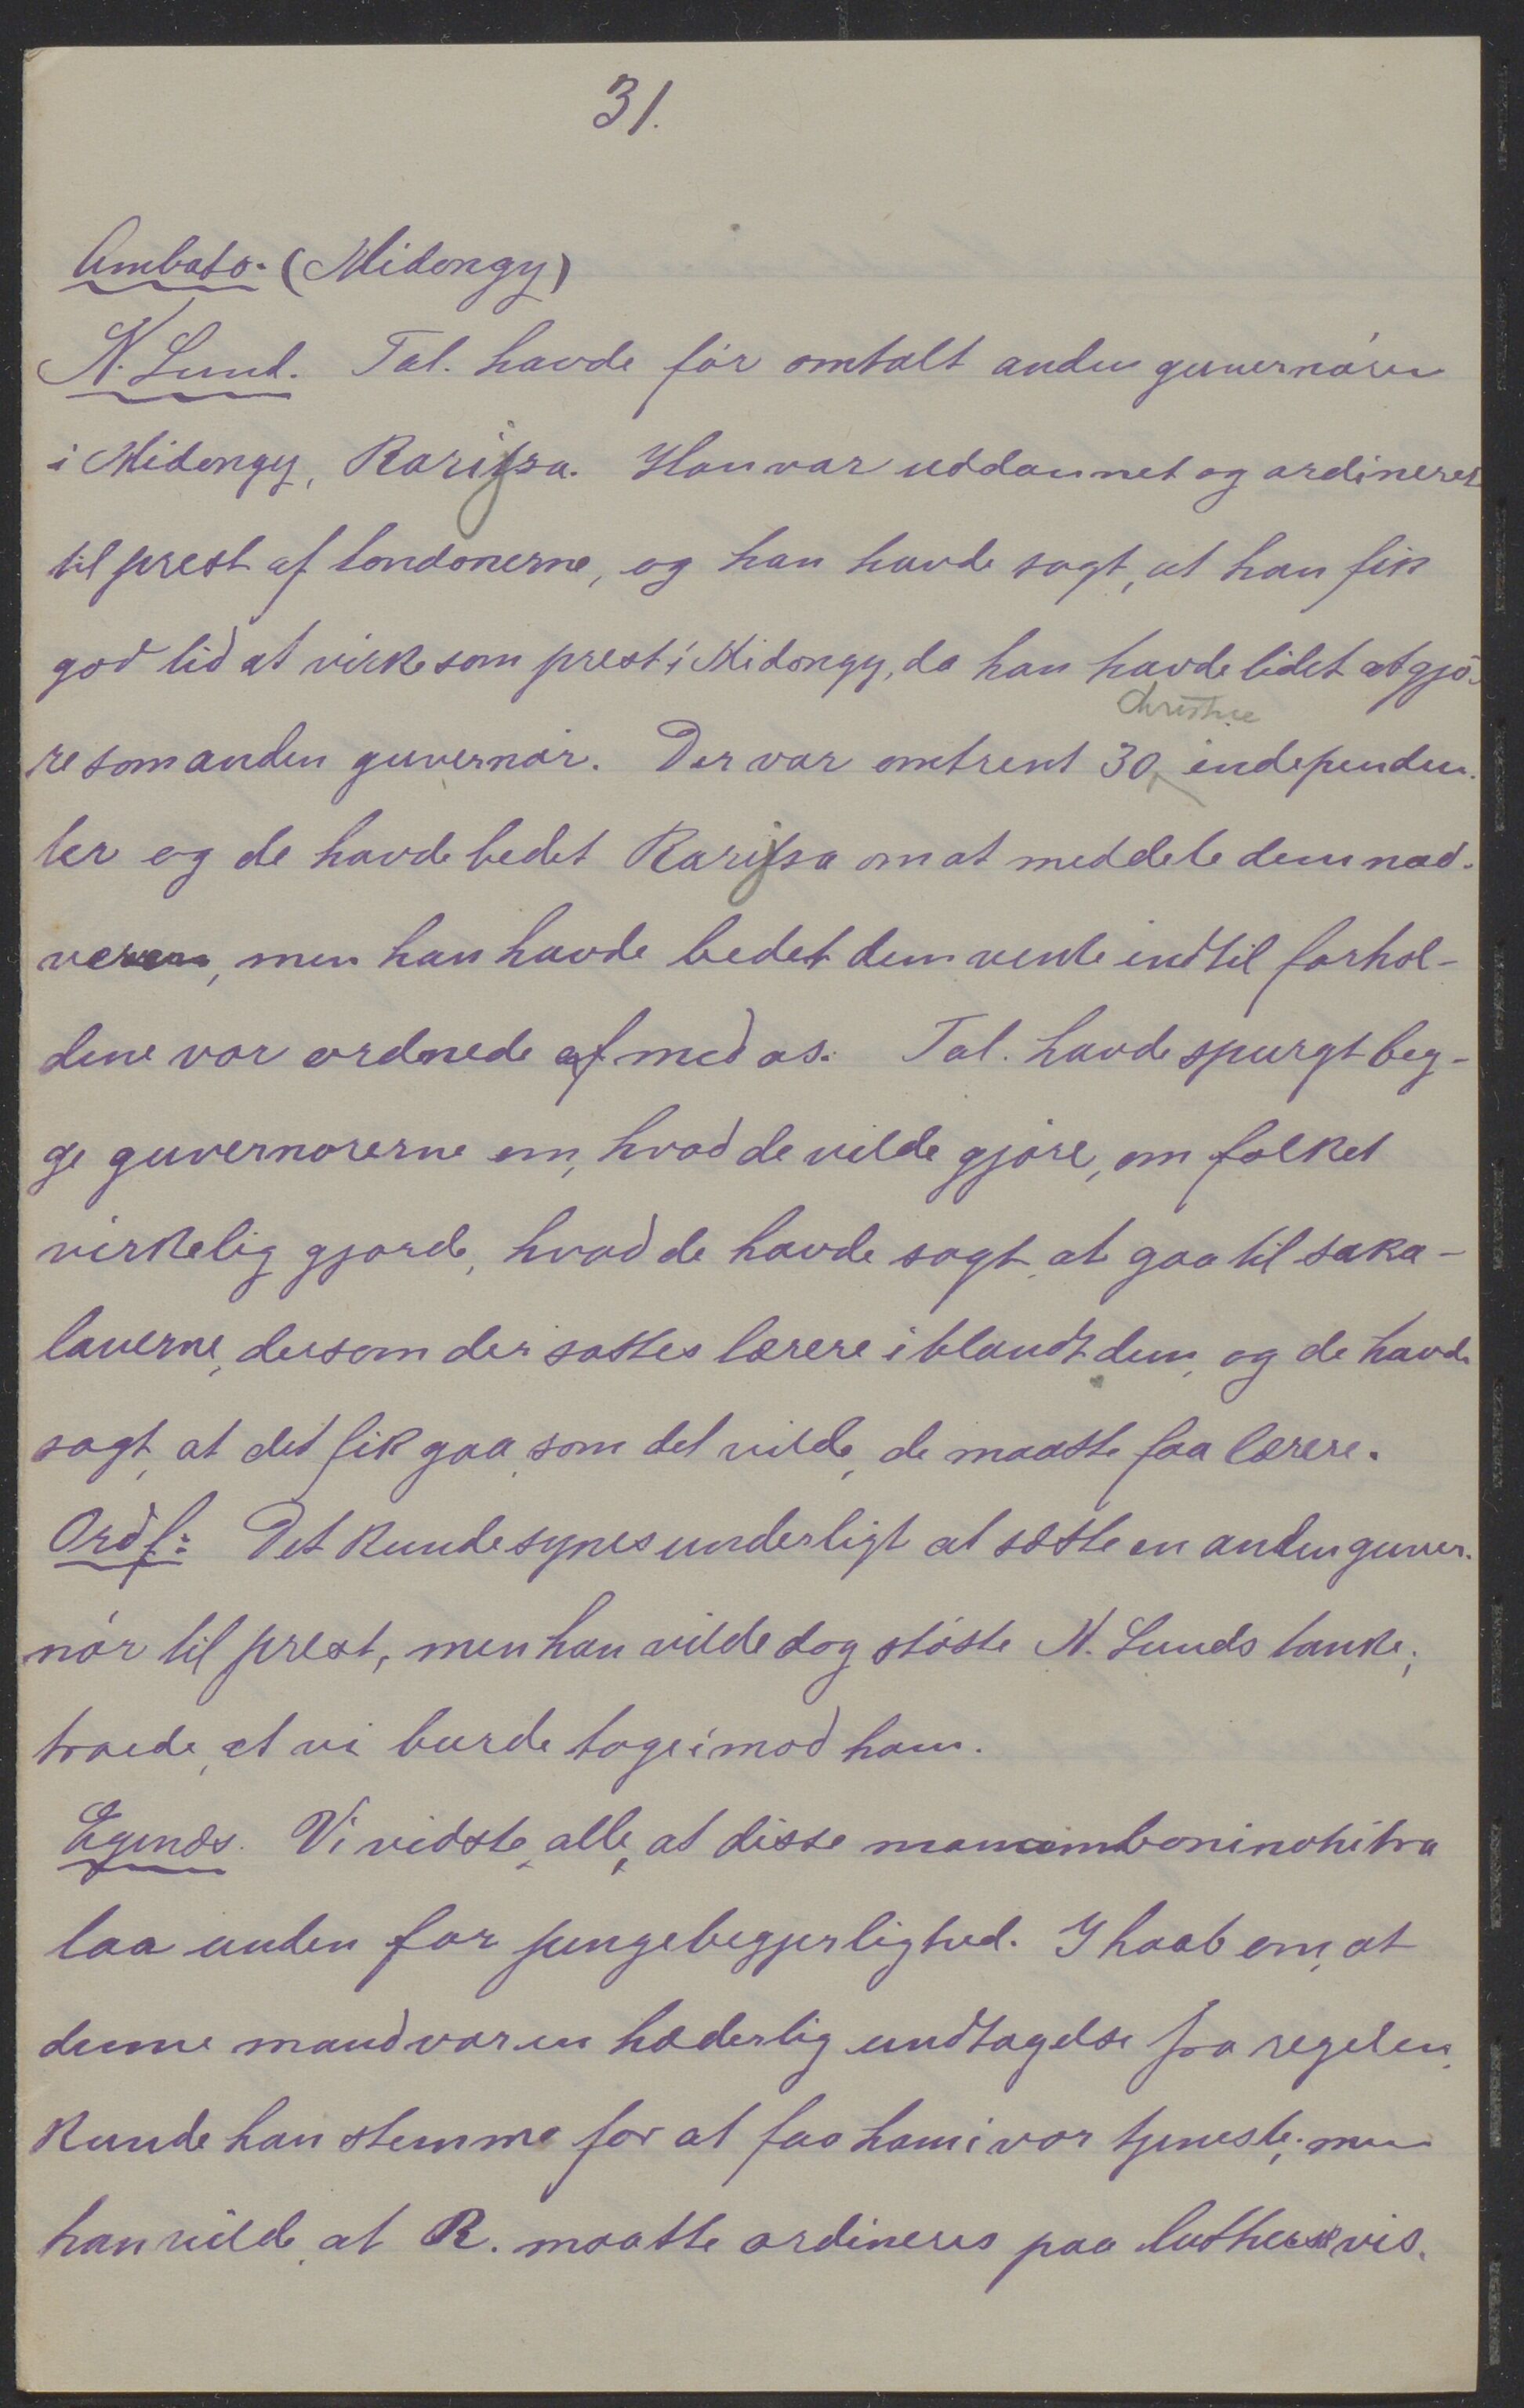 31.
Ambato. (Midongy)
N. Lund. Tal. havde før omtalt anden guvernøren
i Midongy, Rarijsa. Han var uddannet og ordineret
til prest af londonerne, og han havde sagt, at han fik
god tid at virke som prest i Midongy, da han havde lidet at gjø-
Christne
re som anden guvernør. Der var omtrent 30 independen-
ter og de havde bedet Rarijsa om at meddele dem nad-
veren, men han havde bedet dem vente indtil forhol-
dene var ordnede af med os. Tal. havde spurgt beg-
ge guvernørerne om, hvad de vilde gjøre, om folket
virkelig gjorde, hvad de havde sagt, at gaa til saka-
laverne, dersom der sattes lærere iblandt dem, og de havde
sagt, at det fik gaa, som det vilde, de maatte faa lærere.
Ordf: Det kunde synes underligt at sætte en anden guver-
nør til prest, men han vilde dog støtte N. Lunds tanke;
troede, at vi burde tage imod ham.
Egenæs. Vi vidste, alle, at disse manamboninohitra
laa under for pengebegjerlighed. I haab om, at
denne mand var en hæderlig undtagelse fra regelen,
kunde han stemme for at faa ham i vor tjeneste; men
han vilde, at R. maatte ordineres paa luthersk vis.